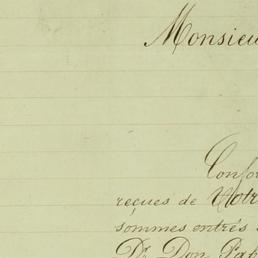 Monsieu
Confo
reçues de Votr
sommes entrés
Dr. Don Pab